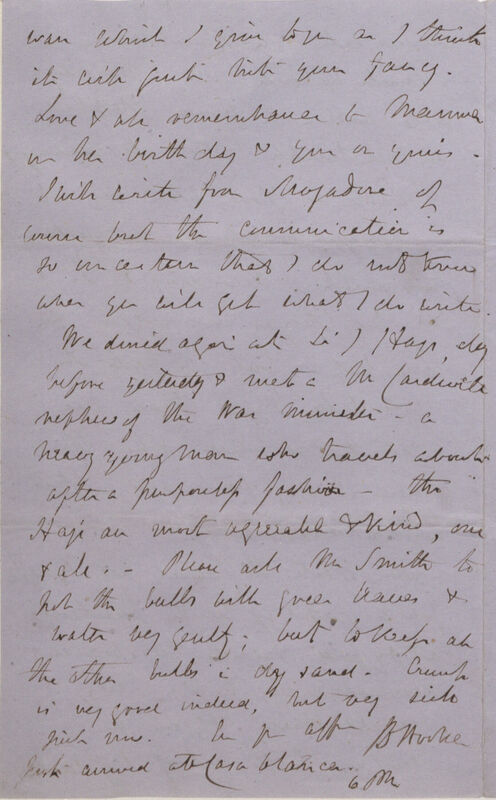 wan which I give to you as I think
it will just suit your fancy.
Love & all remembrance to Mamma
on her birthday & you on yours -
I will write from Mogadore of
course but the communication is
so uncertain that I do not know
when you will get what I do write.
We dined again at Sir J Hays, day
before yesterday & met a Mr Cardwell
nephew of the War minister - a
heavy young man who travels about
after a purposeless fashion - the
Hays are most agreeable & kind, one
& all. - Please ask Mr Smith to
pot the bulbs with green leaves &
water very gently; but to keep all
the other bulbs in dry sand. Crump
is very good indeed, but very sick
just now. Ever yr affn JDHooker
Just arrived at Casa blanca.
6 PM